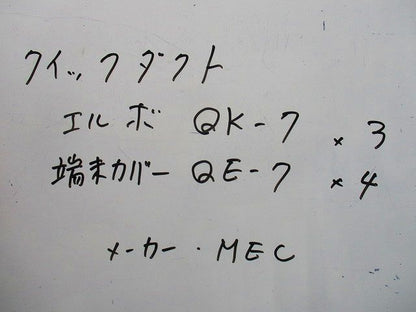 クイックダクト
エルボ QK-7 × 3
端末カバー QE-7 × 4
メーカー・MEC